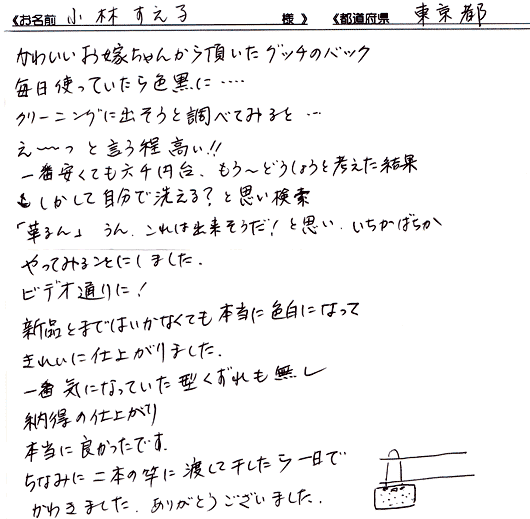 《お名前 小林すえる 様 》 《都道府県 東京都
かわいいお嫁ちゃんから頂いたグッチのバック
毎日使っていたら色黒に‥‥
クリーニングに出そうと調べてみると…
え〜〜っと言う程高い!!
一番安くても六千円台、もう〜どうしようと考えた結果
もしかして自分で洗える?と思い検索
「革るん」うん、これは出来そうだ!と思い、いちかばちか
やってみることにしました、
ビデオ通りに!
新品とまではいかなくても本当に色白になって
きれいに仕上がりました、
一番気になっていた型くずれも無し
納得の仕上がり
本当に良かったです、
ちなみに二本の竿に渡して干したら一日で
かわきました、ありがとうございました、